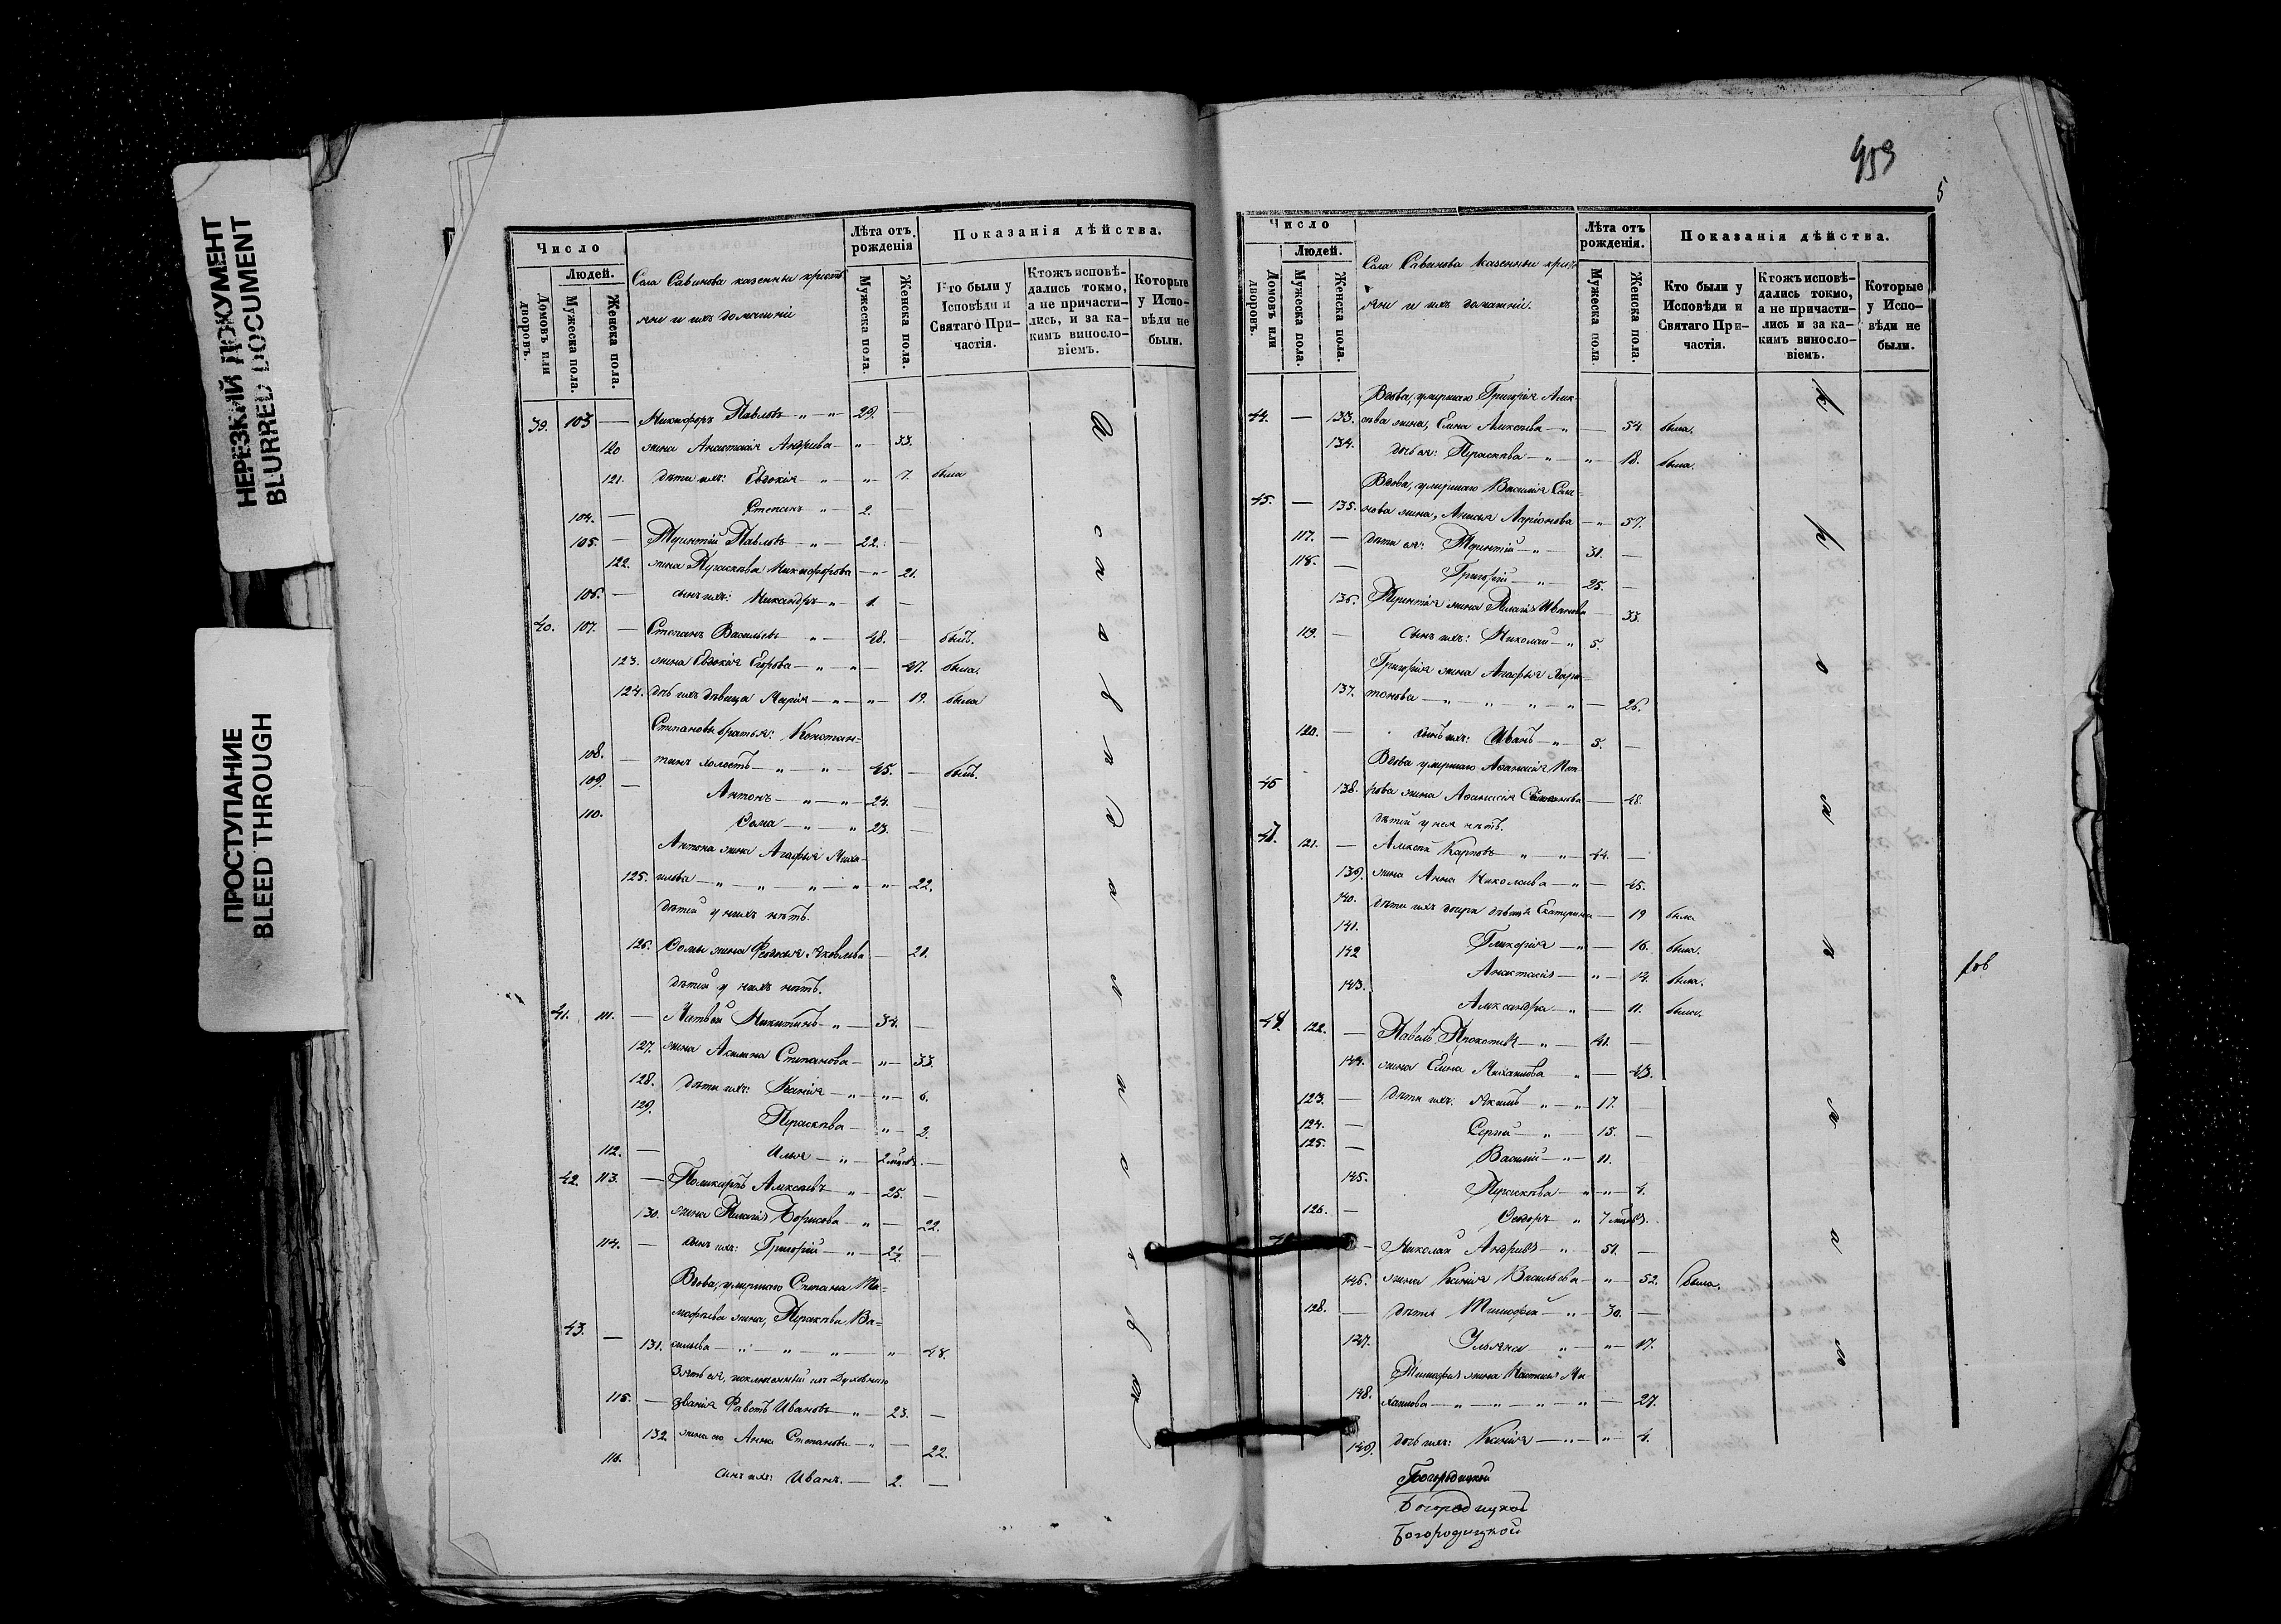 НЕРЕЗКИЙ ДОКУМЕНТ
BLURRED DOCUMENT
ПРОСТУПАНИЕ
BLEED THROUGH
Число
Людей.
Домовъ или дворовъ.
Мужеска пола.
Женска пола.
Села Савинова казенныи крестья-
яни и ихъ домашніи
Лѣта отъ рожденія
Мужеска пола.
Женска пола.
Показанія дѣйства.
Кто были у Исповѣди и Святаго При-частія.
Ктожъ исповѣ-дались токмо, а не причасти-лись, и за ка-кимъ винослo-віемъ.
Которые у Испо-вѣди не были.
39. 103 — Никифоръ Павловъ " — 29. —
120 жена Анастасія Андреева — " — 33.
121. дѣти ихъ: Евдокія — " — " — 7. была
104. — Степанъ " — 2. —
105. — Терентій Павловъ — " — 22. —
122. жена Параскева Никифорова — " — 21.
106. — сынъ ихъ: Никандръ — " 1. —
40. 107. — Степанъ Васильевъ " — 48. — былъ.
123. жена Евдокія Егорова — " — " — 47. была.
124. дочь ихъ дѣвица Марія — " — " — 19. была
Степановы братья: Констан-
108. — тинъ холостъ — " — " — 45. — былъ.
109. — Антонъ — " — " 24. —
110. Ѳома — " — " 23. —
Антона жена Агафья Миха-
125. илова — " — " — " — " — " — 22.
дѣтей у нихъ нѣтъ.
126. Ѳомы жена Федосья Яковлева — 21.
дѣтей у нихъ нѣтъ.
41. 111. — Матвей Никитинъ — " — 34. —
127. жена Акилина Степанова — " — 33.
128. дѣти ихъ: Ксенія — " — " — 6.
129. Параскева — " — 2.
112. — Илья — " — 2 мѣсяц. —
42. 113. — Поликарпъ Алексеевъ " — 25. —
130. жена Пелагія Борисова — " — 22.
114. — сынъ ихъ: Григорій — " — 2½. —
Вдова, умершаго Степана Ти-
мофеева жена, Параскева Ва-
43. — 131. сильева — " — " — " — " — 48.
Зять ея, исключенный изъ Духовнаго
115. — званія Иванов — " — 23. —
132. жена его Анна Степанова — " — 22.
116. сынъ ихъ: Иванъ. — 2. —
959
5
Число
Людей.
Домовъ или дворовъ.
Мужеска пола.
Женска пола.
Села Савинова казенныи крестья-
яни и ихъ домашніи.
Лѣта отъ рожденія.
Мужеска пола
Женска пола.
Показанія дѣйства.
Кто были у Исповѣди и Святаго При-частія.
Ктожъ исповѣ-дались токмо, а не причасти-лись и за ка-кимъ винослo-віемъ.
Которые у Испо-вѣди не были.
Вдова, умершаго Григорія Алек-
44. — 133. сѣева жена, Елена Алексеева — " — 54. была.
134. дочь ея: Параскева — " — " — 18. была.
Вдова, умершаго Василія
45. — 135. нова жена, Анисья Ларіонова — " 57.
117. — дѣти ея: Терентій — " — 31. —
118. — Григорій — " — 25. —
136. Терентія жена Пелагія Иванова — 33.
119. — сынъ ихъ: Николай — " 5.
Григорія жена Агафья Хари-
137. тонова — " — " — " — " — 26.
120. — сынъ ихъ: Иванъ — " — 5. —
Вдова умершаго Афанасія Пет-
46 138. рова жена Афанасія — 48.
дѣтей у нея нѣтъ.
47. 121. — Алексей Карповъ " — " — 44. —
139. жена Анна Николаева — " — 45.
140. дѣти ихъ дочери дѣвицы Екатерина — 19 была
141. Гликерія — " — 16. была.
142 Анастасія — " — 14. была.
143. Александра — " — 11. была.
48. 122. — Павелъ Прокопьевъ — " — 41. —
144. жена Елена Михаилова " — 43.
123. — дѣти ихъ: Якимъ — " — " 17. —
124. — Сергей — " — 15. —
125. — Василій — " — 11.
145. Параскева — " — " — 4.
126. — Ѳеодоръ — " 7 мѣсяц.
— Николай Андреевъ — " — 51. —
146. жена Ксенія Васильева — " — 52. была.
128. — дѣти Тимофей — " — 30. —
147. Ульяна " — " — 17.
Тимофея жена Настасья Ми-
148. хаилова — " — " — " — " — 27.
149. дочь ихъ: Ксенія — " — " — 4.
Богородицкой
Богородицкой
Богородицкой